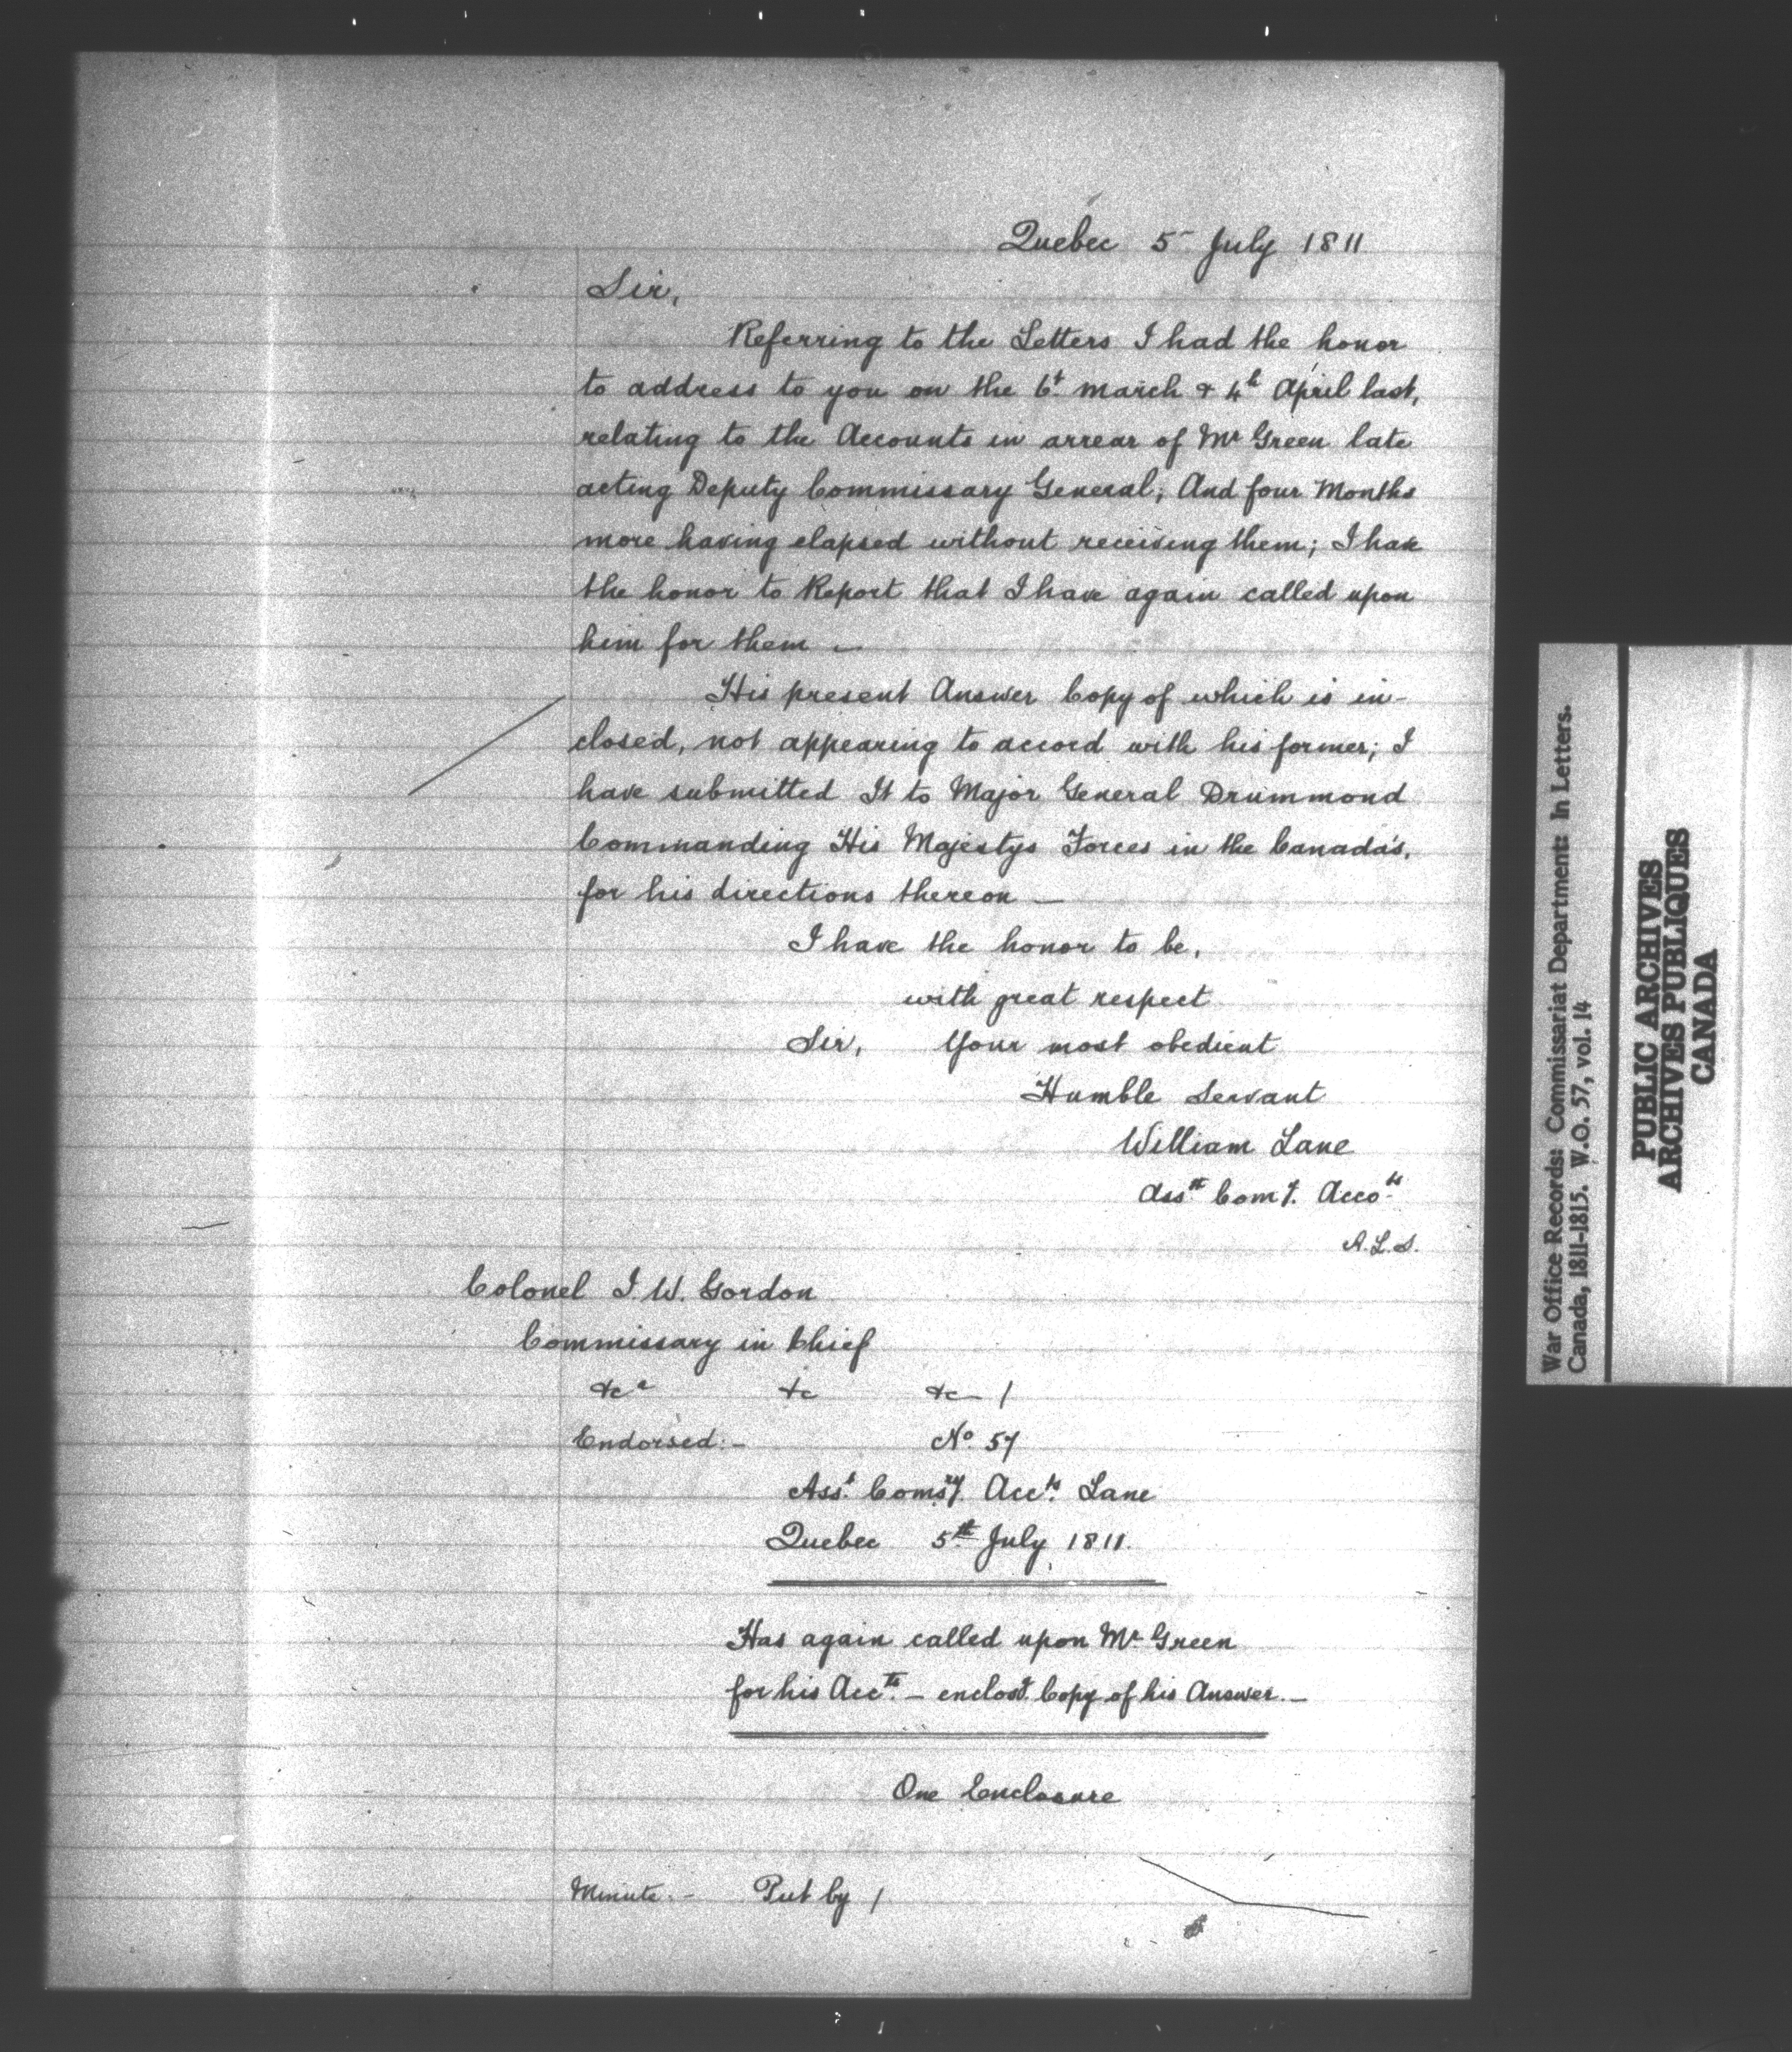 Quebec 5 July 1811
Sir,
Referring to the Letters I had the honor
to address to you on the 6t. March & 4h April last,
relating to the Accounts in arrear of Mr Green late
acting Deputy Commissary General; And four Months
more having elapsed without receiving them; I have
the honor to Report that I have again called upon
him for them —
His present Answer Copy of which is in-
closed, not appearing to accord with his former; I
have submitted It to Major General Drummond
Commanding His Majestys Forces in the Canada's,
for his directions thereon —
I have the honor to be,
with great respect
Sir, Your most obedient
Humble Servant
William Lane
Asst. Comy. Accots.
A.L.S.
Colonel J. W. Gordon
Commissary in Chief
&ca &c &c /
Endorsed:- No. 57
Asst. Comsy. Accts. Lane
Quebec 5th July 1811.
Has again called upon Mr. Green
for his Accts. — enclosd. Copy of his Answer. —
One Enclosure
Minute. - Put by /
War Office Records: Commissariat Department: In Letters.
Canada, 1811-1815. W.O. 57, vol. 14
PUBLIC ARCHIVES
ARCHIVES PUBLIQUES
CANADA